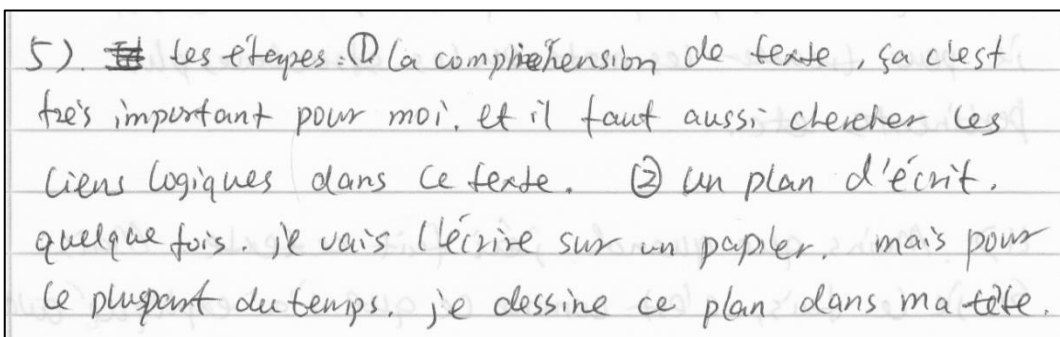 5). Les étapes : ① la compréhension de texte, ça c'est
très important pour moi. et il faut aussi chercher les
liens logiques dans ce texte. ② un plan d'écrit.
quelque fois. je vais l'écrire sur un papier. mais pour
le pluspart du temps. je dessine ce plan dans ma tête.